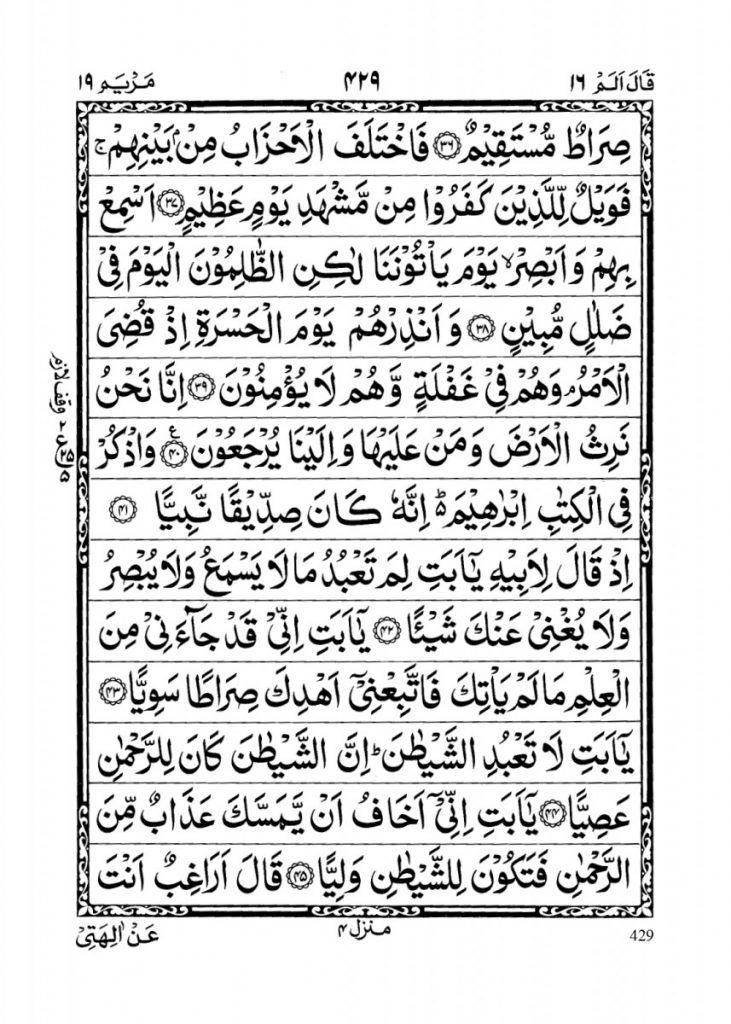 قَالَ اَلَمْ ١٦ ۴۲۹ مَرْيَم ١٩
صِرَاطٌ مُّسْتَقِيْمٌ ﴿۳۶﴾ فَاخْتَلَفَ الْاَحْزَابُ مِنْۢ بَيْنِهِمْ ۚ
فَوَيْلٌ لِّلَّذِيْنَ كَفَرُوْا مِنْ مَّشْهَدِ يَوْمٍ عَظِيْمٍ ﴿۳۷﴾ اَسْمِعْ
بِهِمْ وَاَبْصِرْ ۙ يَوْمَ يَاْتُوْنَنَا لٰكِنِ الظّٰلِمُوْنَ الْيَوْمَ فِيْ
ضَلٰلٍ مُّبِيْنٍ ﴿۳۸﴾ وَاَنْذِرْهُمْ يَوْمَ الْحَسْرَةِ اِذْ قُضِيَ
الْاَمْرُ ۘ وَهُمْ فِيْ غَفْلَةٍ وَّهُمْ لَا يُؤْمِنُوْنَ ﴿۳۹﴾ اِنَّا نَحْنُ
نَرِثُ الْاَرْضَ وَمَنْ عَلَيْهَا وَاِلَيْنَا يُرْجَعُوْنَ ﴿۴۰﴾ ع وَاذْكُرْ
فِي الْكِتٰبِ اِبْرٰهِيْمَ ؕ اِنَّهٗ كَانَ صِدِّيْقًا نَّبِيًّا ﴿۴۱﴾
اِذْ قَالَ لِاَبِيْهِ يٰۤاَبَتِ لِمَ تَعْبُدُ مَا لَا يَسْمَعُ وَلَا يُبْصِرُ
وَلَا يُغْنِيْ عَنْكَ شَيْئًا ﴿۴۲﴾ يٰۤاَبَتِ اِنِّيْ قَدْ جَآءَنِيْ مِنَ
الْعِلْمِ مَا لَمْ يَاْتِكَ فَاتَّبِعْنِيْۤ اَهْدِكَ صِرَاطًا سَوِيًّا ﴿۴۳﴾
يٰۤاَبَتِ لَا تَعْبُدِ الشَّيْطٰنَ ؕ اِنَّ الشَّيْطٰنَ كَانَ لِلرَّحْمٰنِ
عَصِيًّا ﴿۴۴﴾ يٰۤاَبَتِ اِنِّيْۤ اَخَافُ اَنْ يَّمَسَّكَ عَذَابٌ مِّنَ
الرَّحْمٰنِ فَتَكُوْنَ لِلشَّيْطٰنِ وَلِيًّا ﴿۴۵﴾ قَالَ اَرَاغِبٌ اَنْتَ
وقف لازم
429 منزل ۴ عَنْ اٰلِهَتِيْ